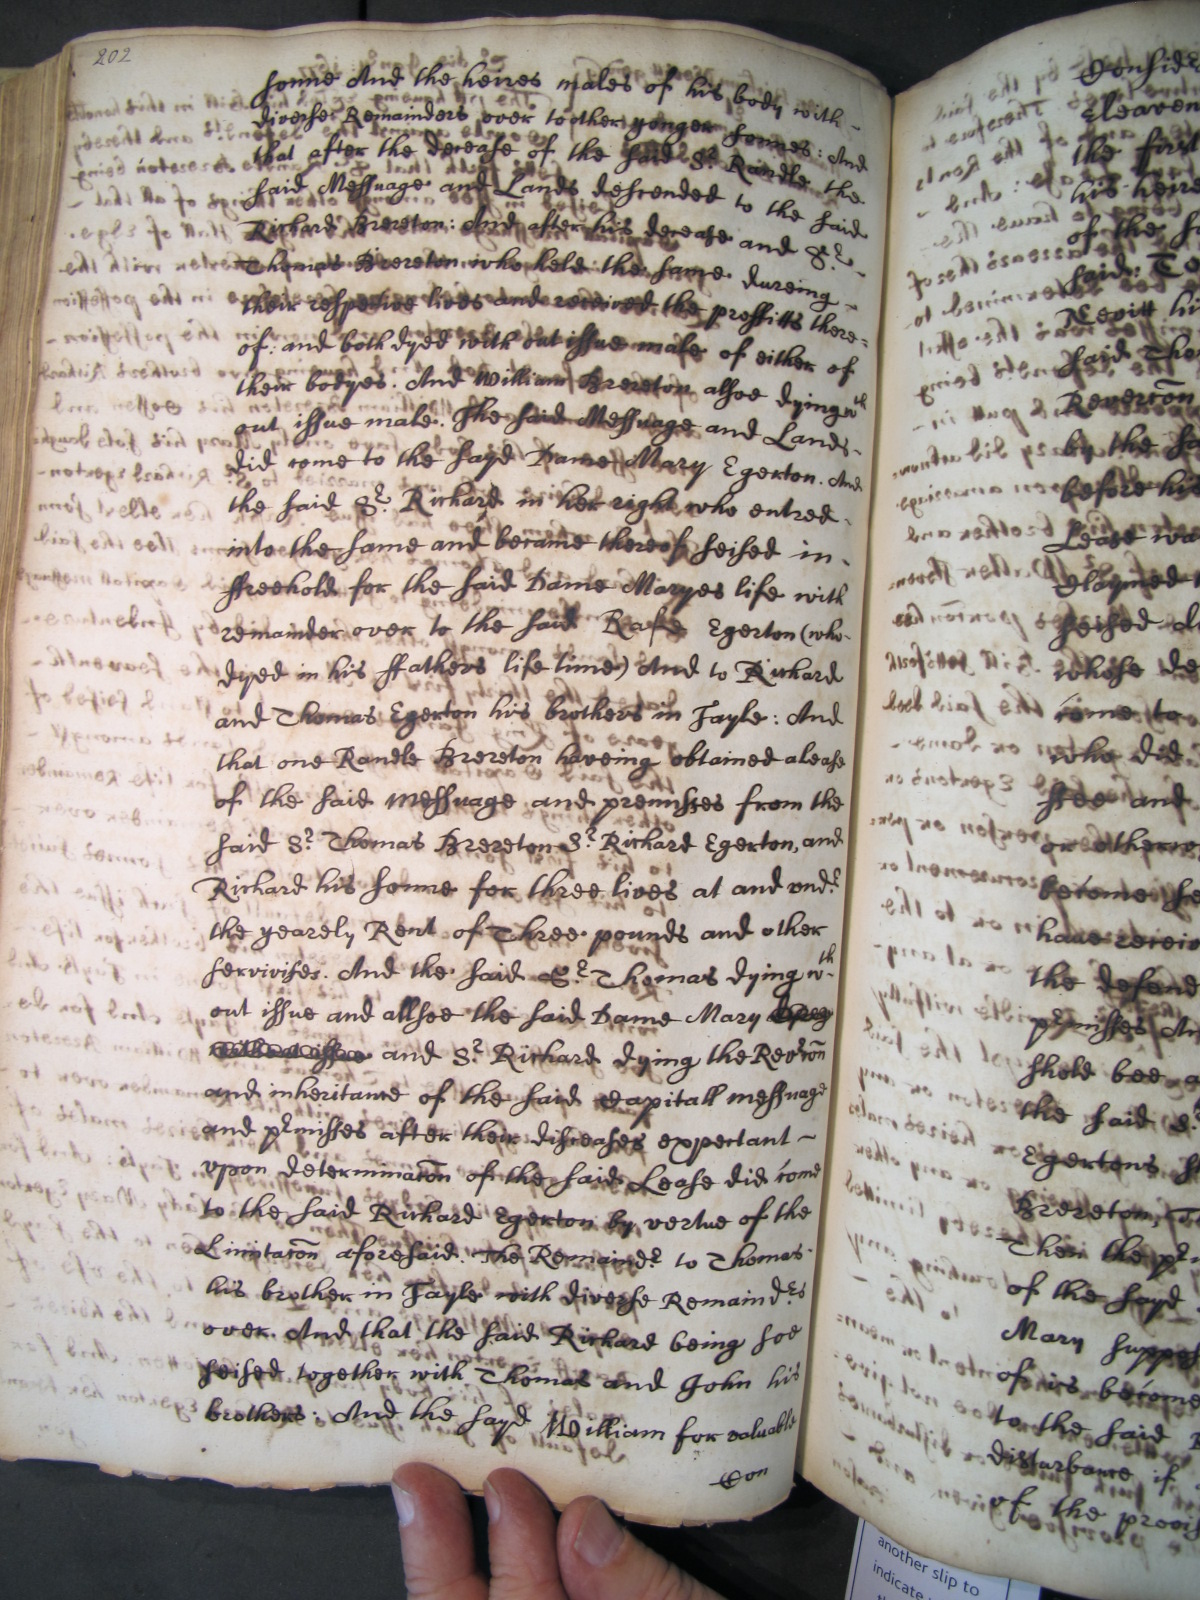 202
sonne And the heires males of his body with -
diverse Remainders over to other yonger sonnes: And
that after the decease of the said Sr. Randle the
said Messuage and Lands descended to the said
Richard Brereton: And after his decease and Sr. -
Thomas Brereton who held the same dureing -
their respective lives and received the proffitts there=
of: and both dyed with out issue male of either of
their bodyes. And William Brereton alsoe dying wth
out issue male. The said Messuage and Lands -
did come to the sayd Dame Mary Egerton. And
the said Sr. Richard in her right who entred -
into the same and became thereof seised in -
ffreehold for the said Dame Maryes life with
remainder over to the said Rafe Egerton (who -
dyed in his ffathers life time) And to Richard
and Thomas Egerton his brothers in Tayle: And
that one Randle Brereton haveing obtained a lease
of the said Messuage and premisses from the
said Sr. Thomas Brereton Sr. Richard Egerton, and
Richard his sonne for three lives at and vndr.
the yearely Rent of Three pounds and other
servivises. And the said Sr. Thomas dying wth-
out issue and allsoe the said Dame Mary dyeg
without issue and Sr. Richard dying the Rev̄con
and inheritance of the said Capitall Messuage
and pr.misses after their disceases expectant ~
vpon determinacōn of the said Lease did come
to the said Richard Egerton by vertue of the
Limitacōn aforesaid. The Remaindr. to Thomas
his brother in Tayle with diverse Remaindrs
over. And that the said Richard being soe
seised together with Thomas and John his
brothers: And the sayd William for valuable
Con
Consid
Eleaven
the first
his heire
of the
said: To
Levitt hi
said Tho
Revercōn
by the
before his
Lease wa
claymed
seised
whose de
come to
who did
ffee and
or otherw
become se
have receiv
the defend
pr.misses An
shold bee a
the said
Egertons
Brereton,
Then the pr.
of the sayd
Mary suppos
of is become
to the said
disturbance if
of the provis
another slip to
indicate